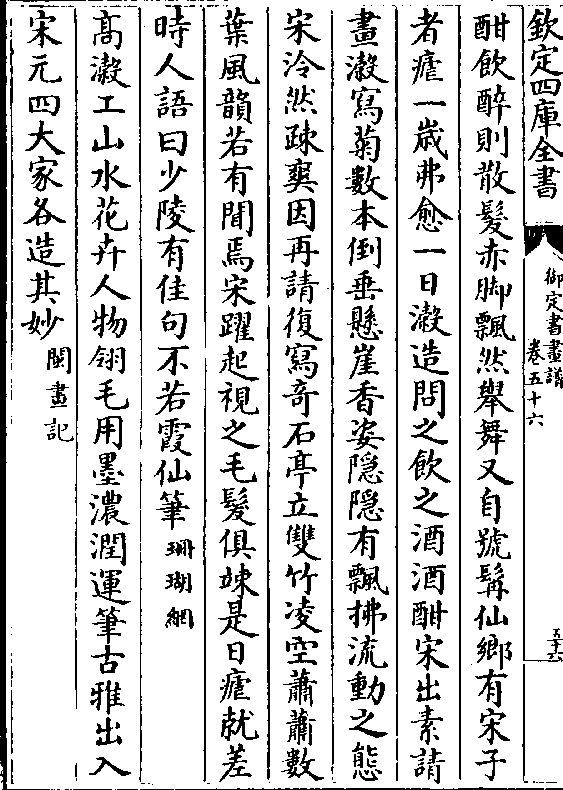 欽定四庫全書
御定書畫譜
卷五十六
五十六
酣飲醉則散髮赤脚飄然舉舞又自號髯仙鄉有宋子
者瘧一歳弗愈一日澂造問之飲之酒酒酣宋出素請
畫澂寫菊數本倒垂懸崖香姿隱隱有飄拂流動之態
宋泠然疎爽因再請復寫奇石亭立雙竹凌空蕭蕭數
葉風韻若有聞焉宋躍起視之毛髮俱竦是日瘧就差
時人語曰少陵有佳句不若霞仙筆 珊瑚網
髙澂工山水花卉人物翎毛用墨濃潤運筆古雅出入
宋元四大家各造其妙 閩畫記